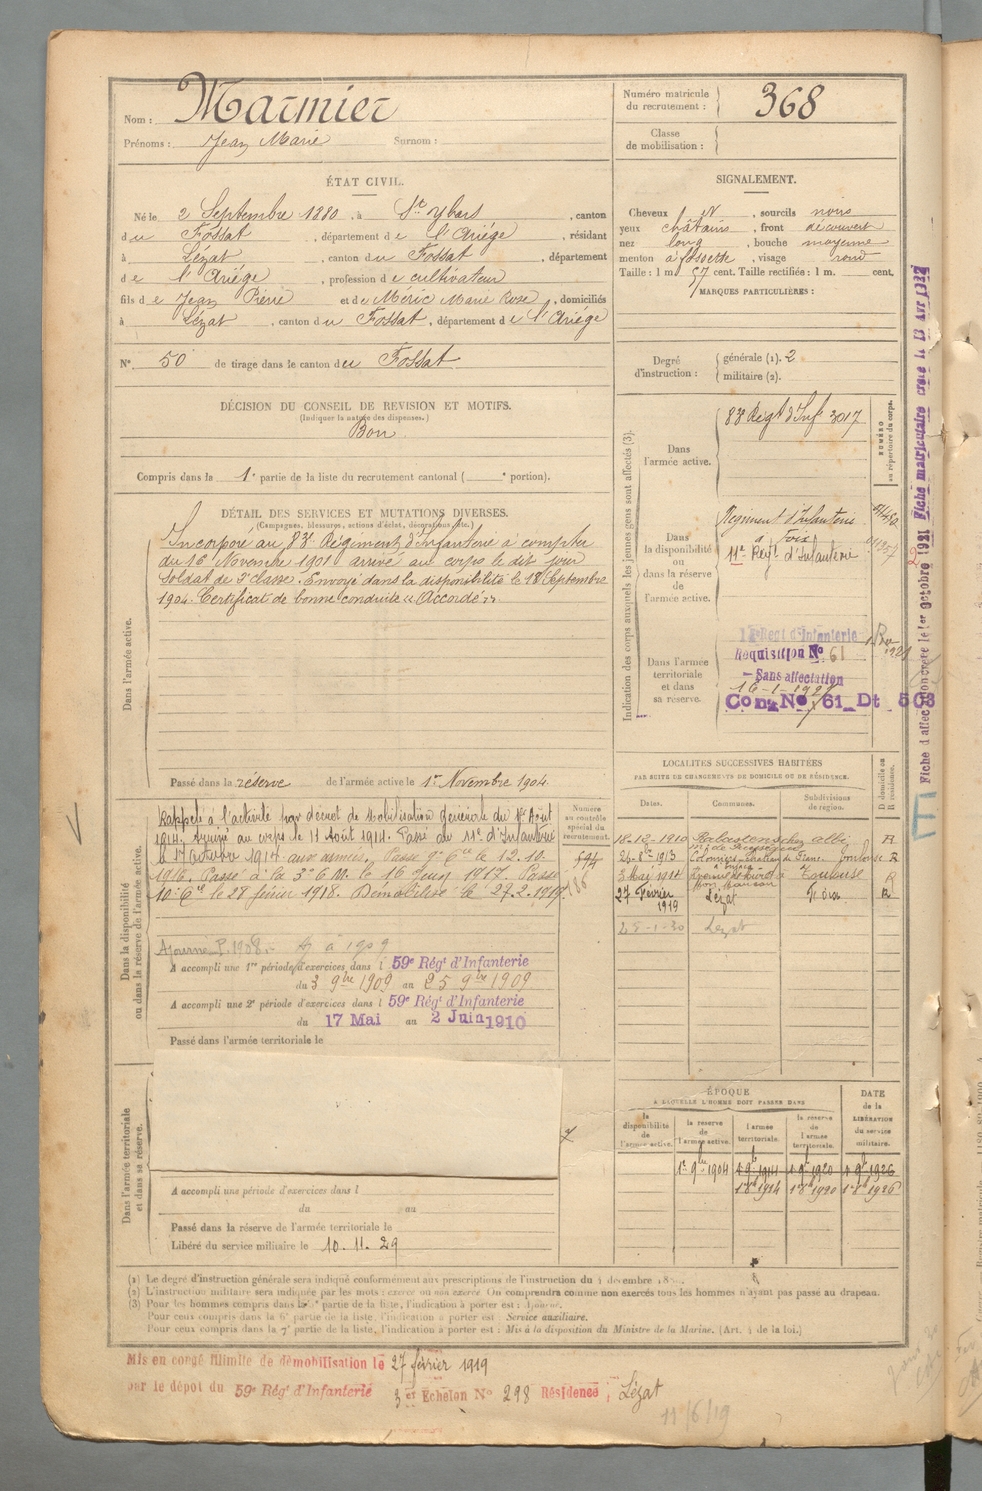 Nom : Marmier
Prénoms : Jean Marie Surnom :
Numéro matricule du recrutement : 368
Classe de mobilisation :
ÉTAT CIVIL.
Né le 2 Septembre 1880, à St Ybars, canton
du Fossat, département de l'Ariége, résidant
à Lézat, canton du Fossat, département
de l'Ariége, profession de cultivateur
fils de Jean Pierre et de Méric Marie Rose, domiciliés
à Lézat, canton du Fossat, département de l'Ariége
N° 50 de tirage dans le canton du Fossat
DÉCISION DU CONSEIL DE REVISION ET MOTIFS.
(Indiquer la nature des dispenses.)
Bon
Compris dans la 1e partie de la liste du recrutement cantonal ( e portion).
SIGNALEMENT.
Cheveux N, sourcils noirs
yeux châtains, front découvert
nez long, bouche moyenne
menton à fossette, visage rond
Taille : 1 m 57 cent. Taille rectifiée : 1 m. cent.
MARQUES PARTICULIÈRES :
Degré d'instruction : générale (1). 2
militaire (2).
DÉTAIL DES SERVICES ET MUTATIONS DIVERSES.
(Campagnes, blessures, actions d'éclat, décorations, etc.)
Dans l'armée active.
Incorporé au 83e Régiment d'Infanterie à compter
du 16 Novembre 1901 arrivé au corps le dit jour
Soldat de 2e classe. Envoyé dans la disponibilité le 18 Septembre
1904. Certificat de bonne conduite « Accordé »
Passé dans la réserve de l'armée active le 1er Novembre 1904
Indication des corps auxquels les jeunes gens sont affectés (3).
NUMÉRO au répertoire du corps.
Dans l'armée active.
83e Régt d'Inf 3017
Dans la disponibilité ou dans la réserve de l'armée active.
Régiment d'Infanterie
à Foix
11e Régt d'Infanterie
Dans l'armée territoriale et dans sa réserve.
Régt d'Infanterie
Requisition No 61
Sans affectation
16-1-1927
Con. No 61 Dt 503
Fiche matriculaire créée le 13 Avr 1932
LOCALITÉS SUCCESSIVES HABITÉES
PAR SUITE DE CHANGEMENTS DE DOMICILE OU DE RÉSIDENCE.
Dates. Communes. Subdivisions de région. D domicile ou R résidence.
18-12-1910 Rabastens albi R
1913 Toulouse R
3 Mai 1914 Toulouse R
27 Février 1919 Lézat Foix R
25-1-30 Lezat
Dans la disponibilité ou dans la réserve de l'armée active.
Numéro au contrôle spécial du recrutement.
594
Rappelé à l'activité par décret de Mobilisation Générale du 1er Août
1914. Arrivé au corps le 11 Août 1914. Passé au 11e d'Infanterie
le 17 Octobre 1914 aux armées. Passé 9e Cie le 12.10.
1916. Passé à la 3e C.M. le 16 Juin 1917. Passé
10e Cie le 28 février 1918. Démobilisé le 27.2.1919.
Ajourné P. 1908. à 1909
A accompli une 1re période d'exercices dans l 59e Régt d'Infanterie
du 3 9bre 1909 au 25 9bre 1909
A accompli une 2e période d'exercices dans l 59e Régt d'Infanterie
du 17 Mai au 2 Juin 1910
Passé dans l'armée territoriale le
Dans l'armée territoriale et dans sa réserve.
A accompli une période d'exercices dans l
du au
Passé dans la réserve de l'armée territoriale le
Libéré du service militaire le 10. 11. 29
ÉPOQUE
A LAQUELLE L'HOMME DOIT PASSER DANS
la disponibilité de l'armée active. la réserve de l'armée active. l'armée territoriale. la réserve de l'armée territoriale. DATE de la LIBÉRATION du service militaire.
1er 9bre 1904 1er 9b 1914 1er 9b 1920 1er 9b 1926
1er 8b 1914 1er 8b 1920 1er 8b 1926
(1) Le degré d'instruction générale sera indiqué conformément aux prescriptions de l'instruction du 4 décembre
(2) L'instruction militaire sera indiquée par les mots : exercé ou non exercé On comprendra comme non exercés tous les hommes n'ayant pas passé au drapeau.
(3) Pour les hommes compris dans la 5e partie de la liste, l'indication à porter est : Ajourné.
Pour ceux compris dans la 6e partie de la liste, l'indication à porter est : Service auxiliaire.
Pour ceux compris dans la 7e partie de la liste, l'indication à porter est : Mis à la disposition du Ministre de la Marine. (Art. 4 de la loi.)
Mis en congé illimité de démobilisation le 27 février 1919
par le dépôt du 59e Régt d'Infanterie 3er Echelon No 298 Résidence, Lézat
11/6/19